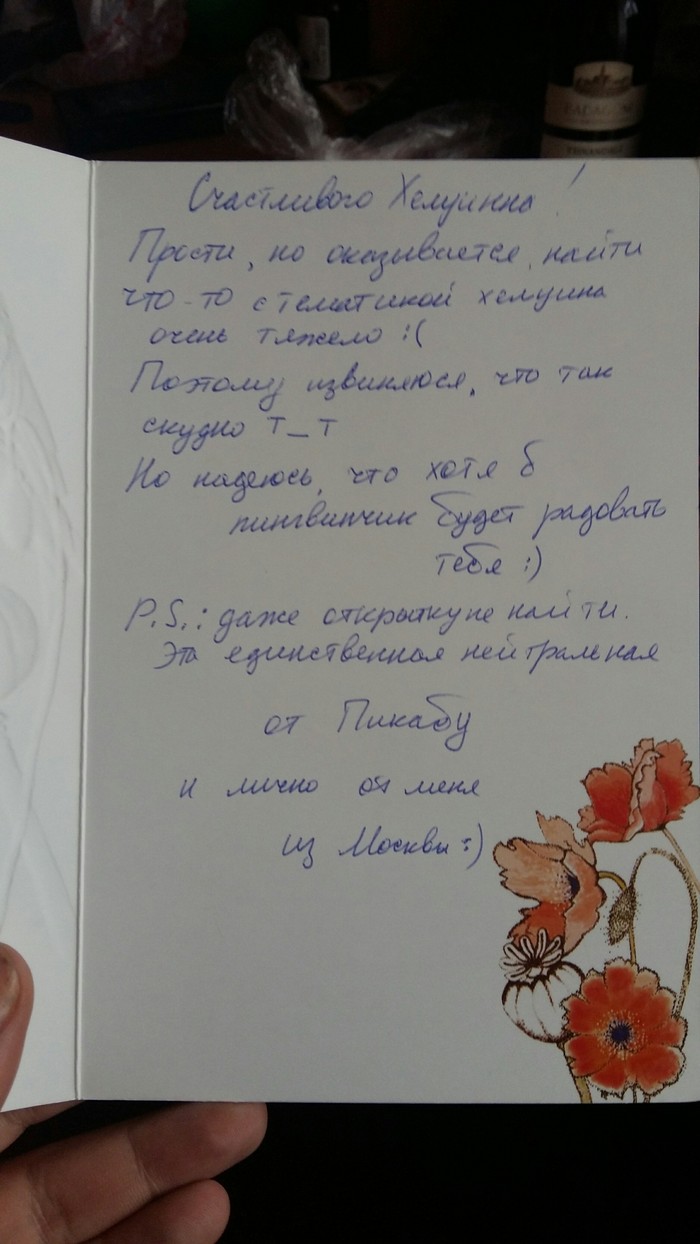 Счастливого Хелуинна!
Прости, но оказывается, найти
что-то с тематикой хелуина
очень тяжело :(
Поэтому извиняюся, что так
скудно T_T
Но надеюсь, что хотя б
пингвинчик будет радовать
тебя :)
P.S.: даже открытку не найти.
Эта единственная нейтральная
от Пикабу
и лично от меня
из Москвы :)